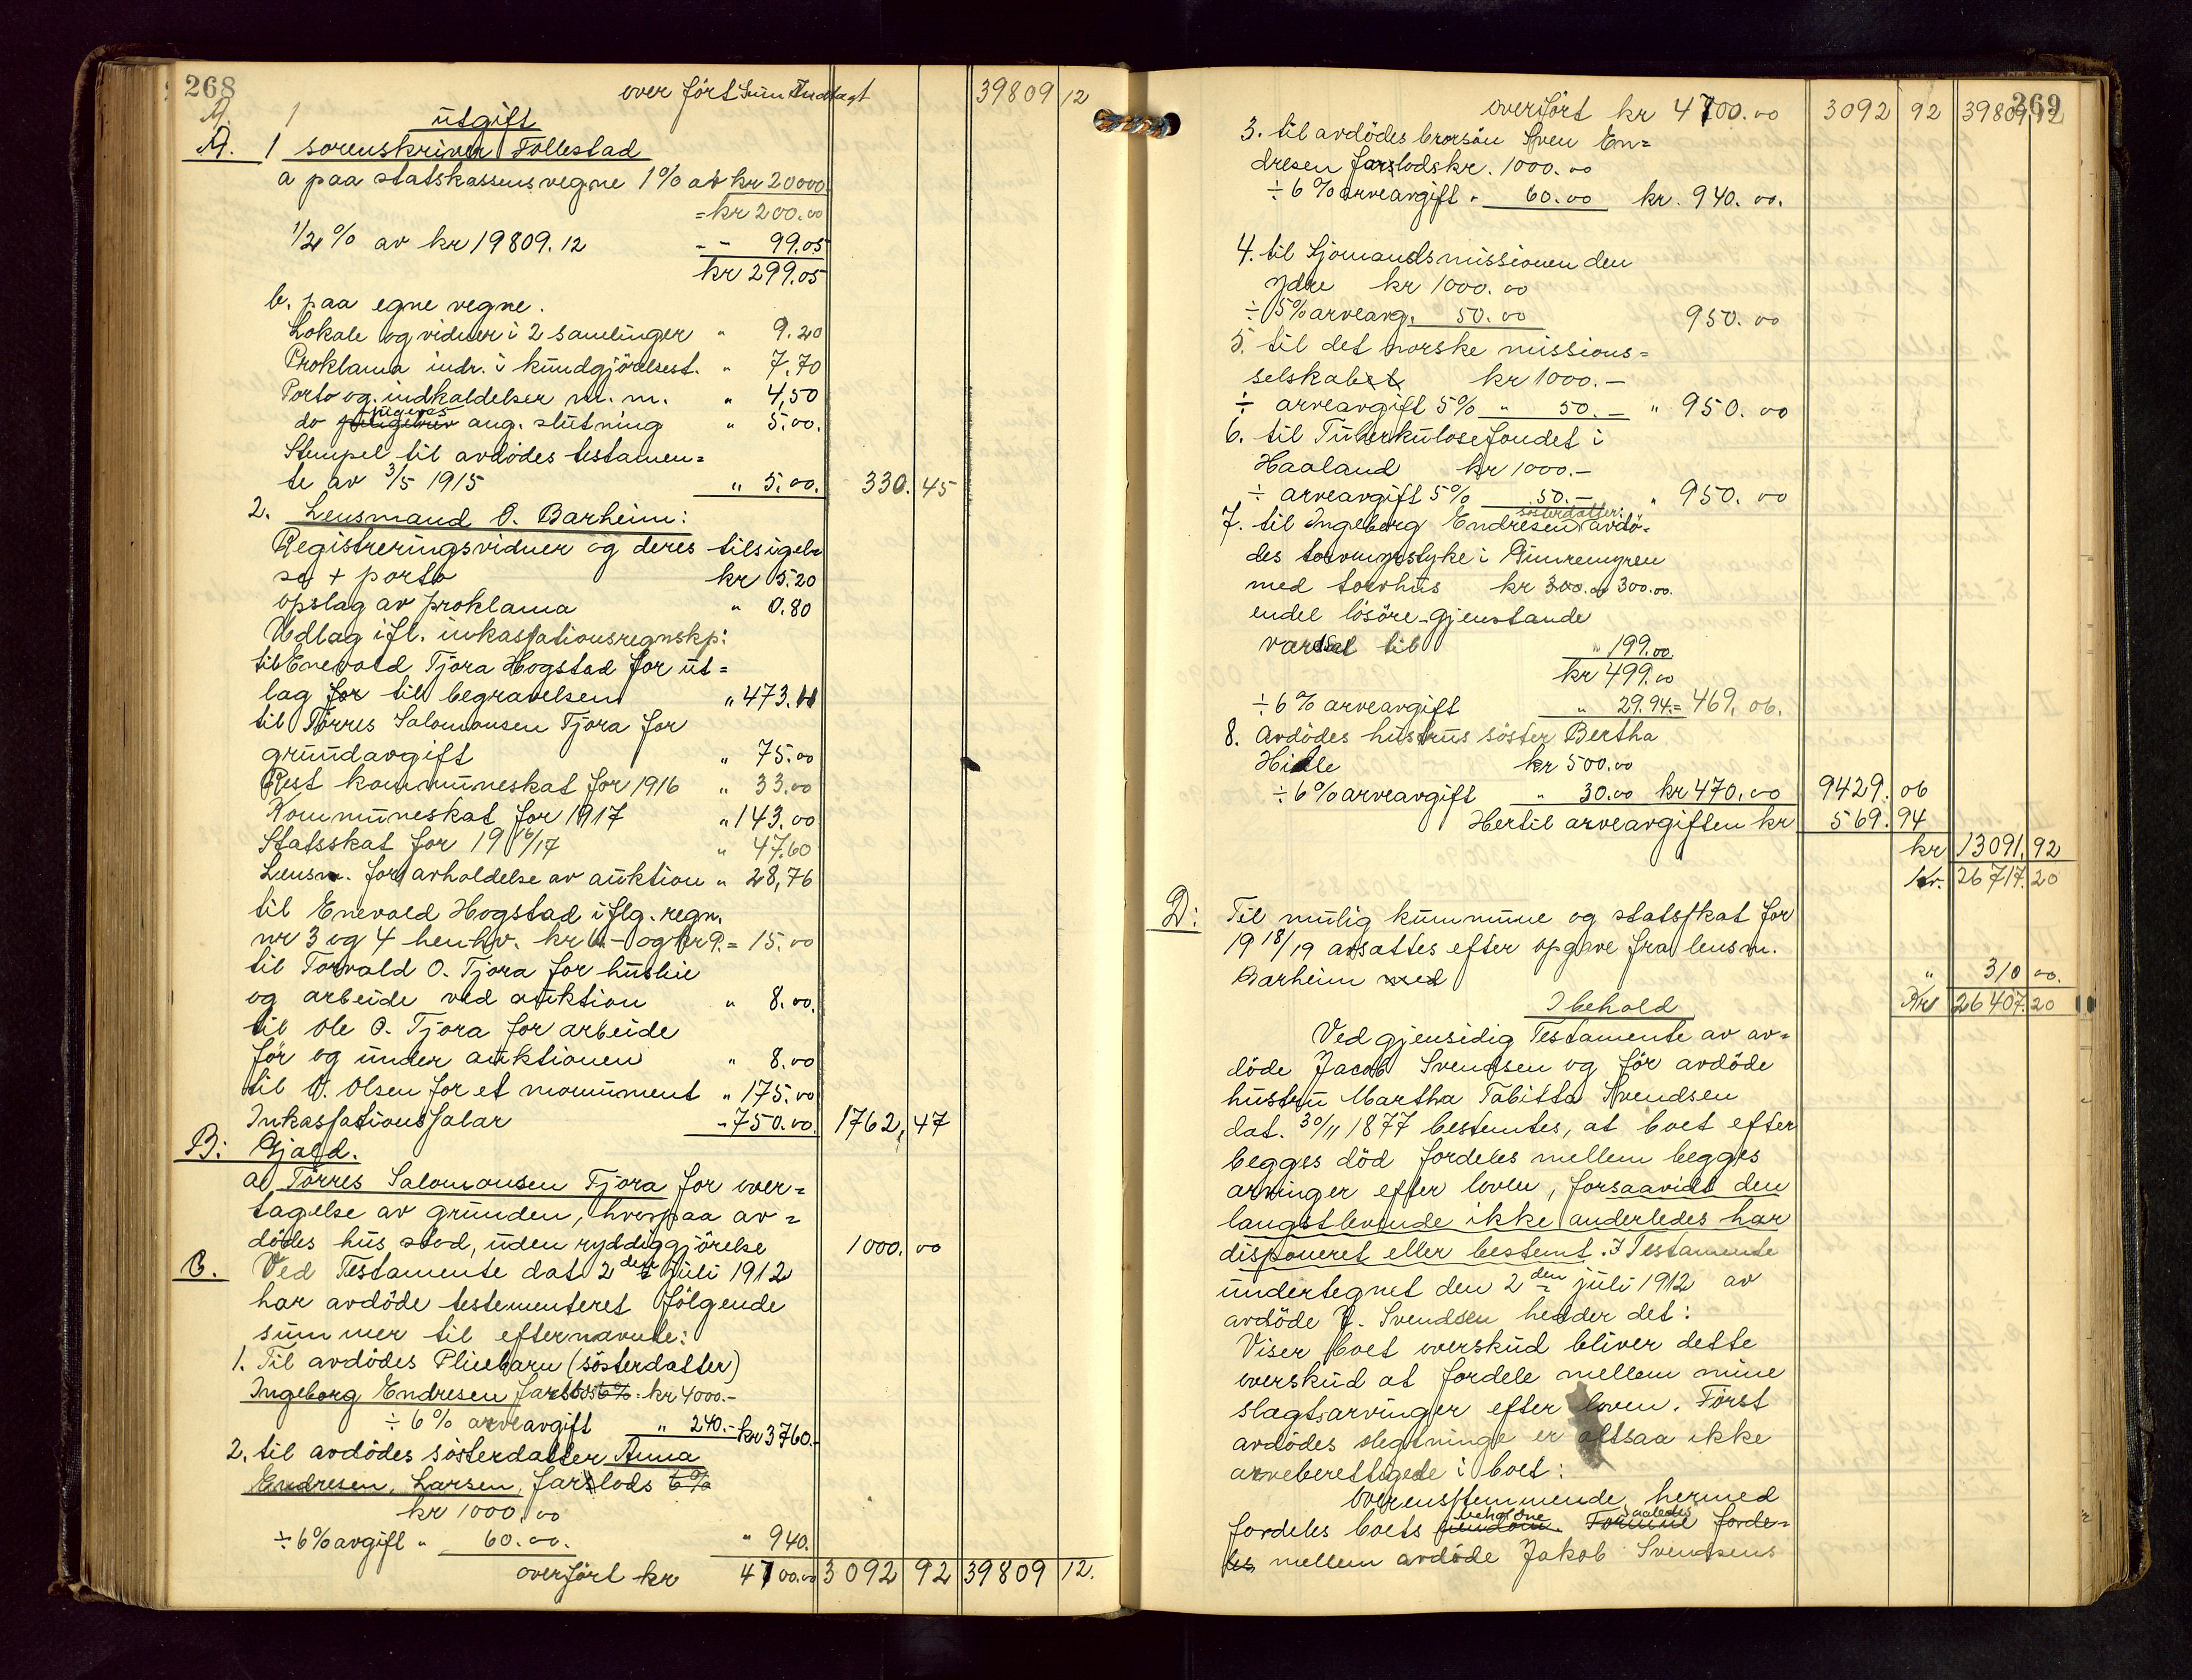 268
over fört Sum Indtagt 39809 12
A. 1 utgift
A. 1 sorenskriver Follestad
a paa statskassens vegne 1% av kr 20000
= kr 200.00
1/2 % av kr 19809.12 - - 99.05
kr 299.05
b. paa egne vegne.
Lokale og vidner i 2 samlinger " 9.20
Proklama indr. i kundgjörelsest. " 7.70
Porto og indkaldelser m. m. " 4,50
do ang. slutning " 5.00.
Stempel til avdödes testamen=
te av 3/5 1915 " 5.00. 330.45
2. Lensmand O. Barheim:
Registreringsvidner og deres tilsigel
se + porto kr 5.20
opslag av proklama " 0.80
Udlag ifl. inkassationsregnskp:
til Enevald Tjora Hogstad for ut=
lag for til begravelsen " 473.11
til Törres Salomonsen Tjora for
grundavgift " 75.00
Rest kommuneskat for 1916 " 33.00
Kommuneskat for 1917 " 143.00
Statsskat for 19 16/17 " 47.60
Lensm. for avholdelse av auktion " 28,76
til Enevald Hogstad iflg. regn.
nr 3 og 4 henhv. kr 6.- og kr 9.= 15.00
til Torvald O. Tjora for huslie
og arbeide ved auktion " 8.00.
til Ole O. Tjora for arbeide
för og under auktionen " 8.00
til O. Olsen for et monument " 175.00
Inkassationssalar - 750.00. 1762,47
B: Gjæld.
a) Törres Salomonsen Tjora for over=
tagelse av grunden, hvorpaa av=
dödes hus stod, uden ryddiggjörelse 1000.00
C. Ved Testamente dat 2den juli 1912
har avdöde testementeret fölgende
summer til efternævnte:
1. Til avdödes Pliebarn (sösterdatter)
Ingeborg Endresen farslods 6%. kr 4000.-
÷ 6% arveavgift " 240.- kr 3760.-
2. til avdödes sösterdatter Anna
Endresen, Larsen, farslods 6%
kr 1000.00
÷ 6% avgift " 60.00. " 940.
overfört kr 4700.00 3092 92 39809 12.
369
overfört kr 4700.00 3092 92 39809,12
3. til avdödes brorsön Sven En=
dresen farslods kr. 1000.00
÷ 6% arveavgift " 60.00 kr. 940.00.
4. til Sjömandsmissionen den
ydre kr 1000.00
÷ 5% arveavg. 50.00 950.00
5. til det norske missions=
selskabet kr 1000.—
÷ arveavgift 5% " 50.— " 950.00
6. til Tuberkulosefondet i
Haaland kr 1000.—
÷ arveavgift 5% 50.— " 950.00
sösterdatter:
7. til Ingeborg Endresen avdö-
des torvmyrstyke i
med torvhus kr 300.00 300.00.
endel lösöre-gjenstande
vardsat til " 199.00.
kr 499.00
÷ 6% arveavgift " 29.94.= 469,06.
8. Avdödes hustrus söster Bertha
Hidle kr 500.00
÷ 6% arveavgift " 30.00 kr 470.00 9429.06
Hertil arveavgiften kr 569.94
kr 13091,92
kr. 26717.20
D: Til mulig kummune og statsskat for
19 18/19 avsattes efter opgave fra lensm.
Barheim med " 310 00.
Kr 26407.20
I behold
Ved gjensidig Testamente av av=
döde Jacob Svendsen og för avdöde
hustru Martha Tabitta Svendsen
dat. 30/11 1877 bestemtes, at boet efter
begges död fordeles mellem begges
arvinger efter loven, forsaavidt den
langstlevende ikke anderledes har
disponeret eller bestemt. I Testamente
undertegnet den 2den juli 1912 av
avdöde J. Svendsen hedder det:
Viser boet overskud bliver dette
overskud at fordele mellem mine
slagtsarvinger efter loven. Först
avdödes slegtninge er altsaa ikke
arveberettigede i boet:
Overensstemmende hermed
beholdne saaledes
fordeles boets Formue forde-
les mellem avdöde Jakob Svendsens